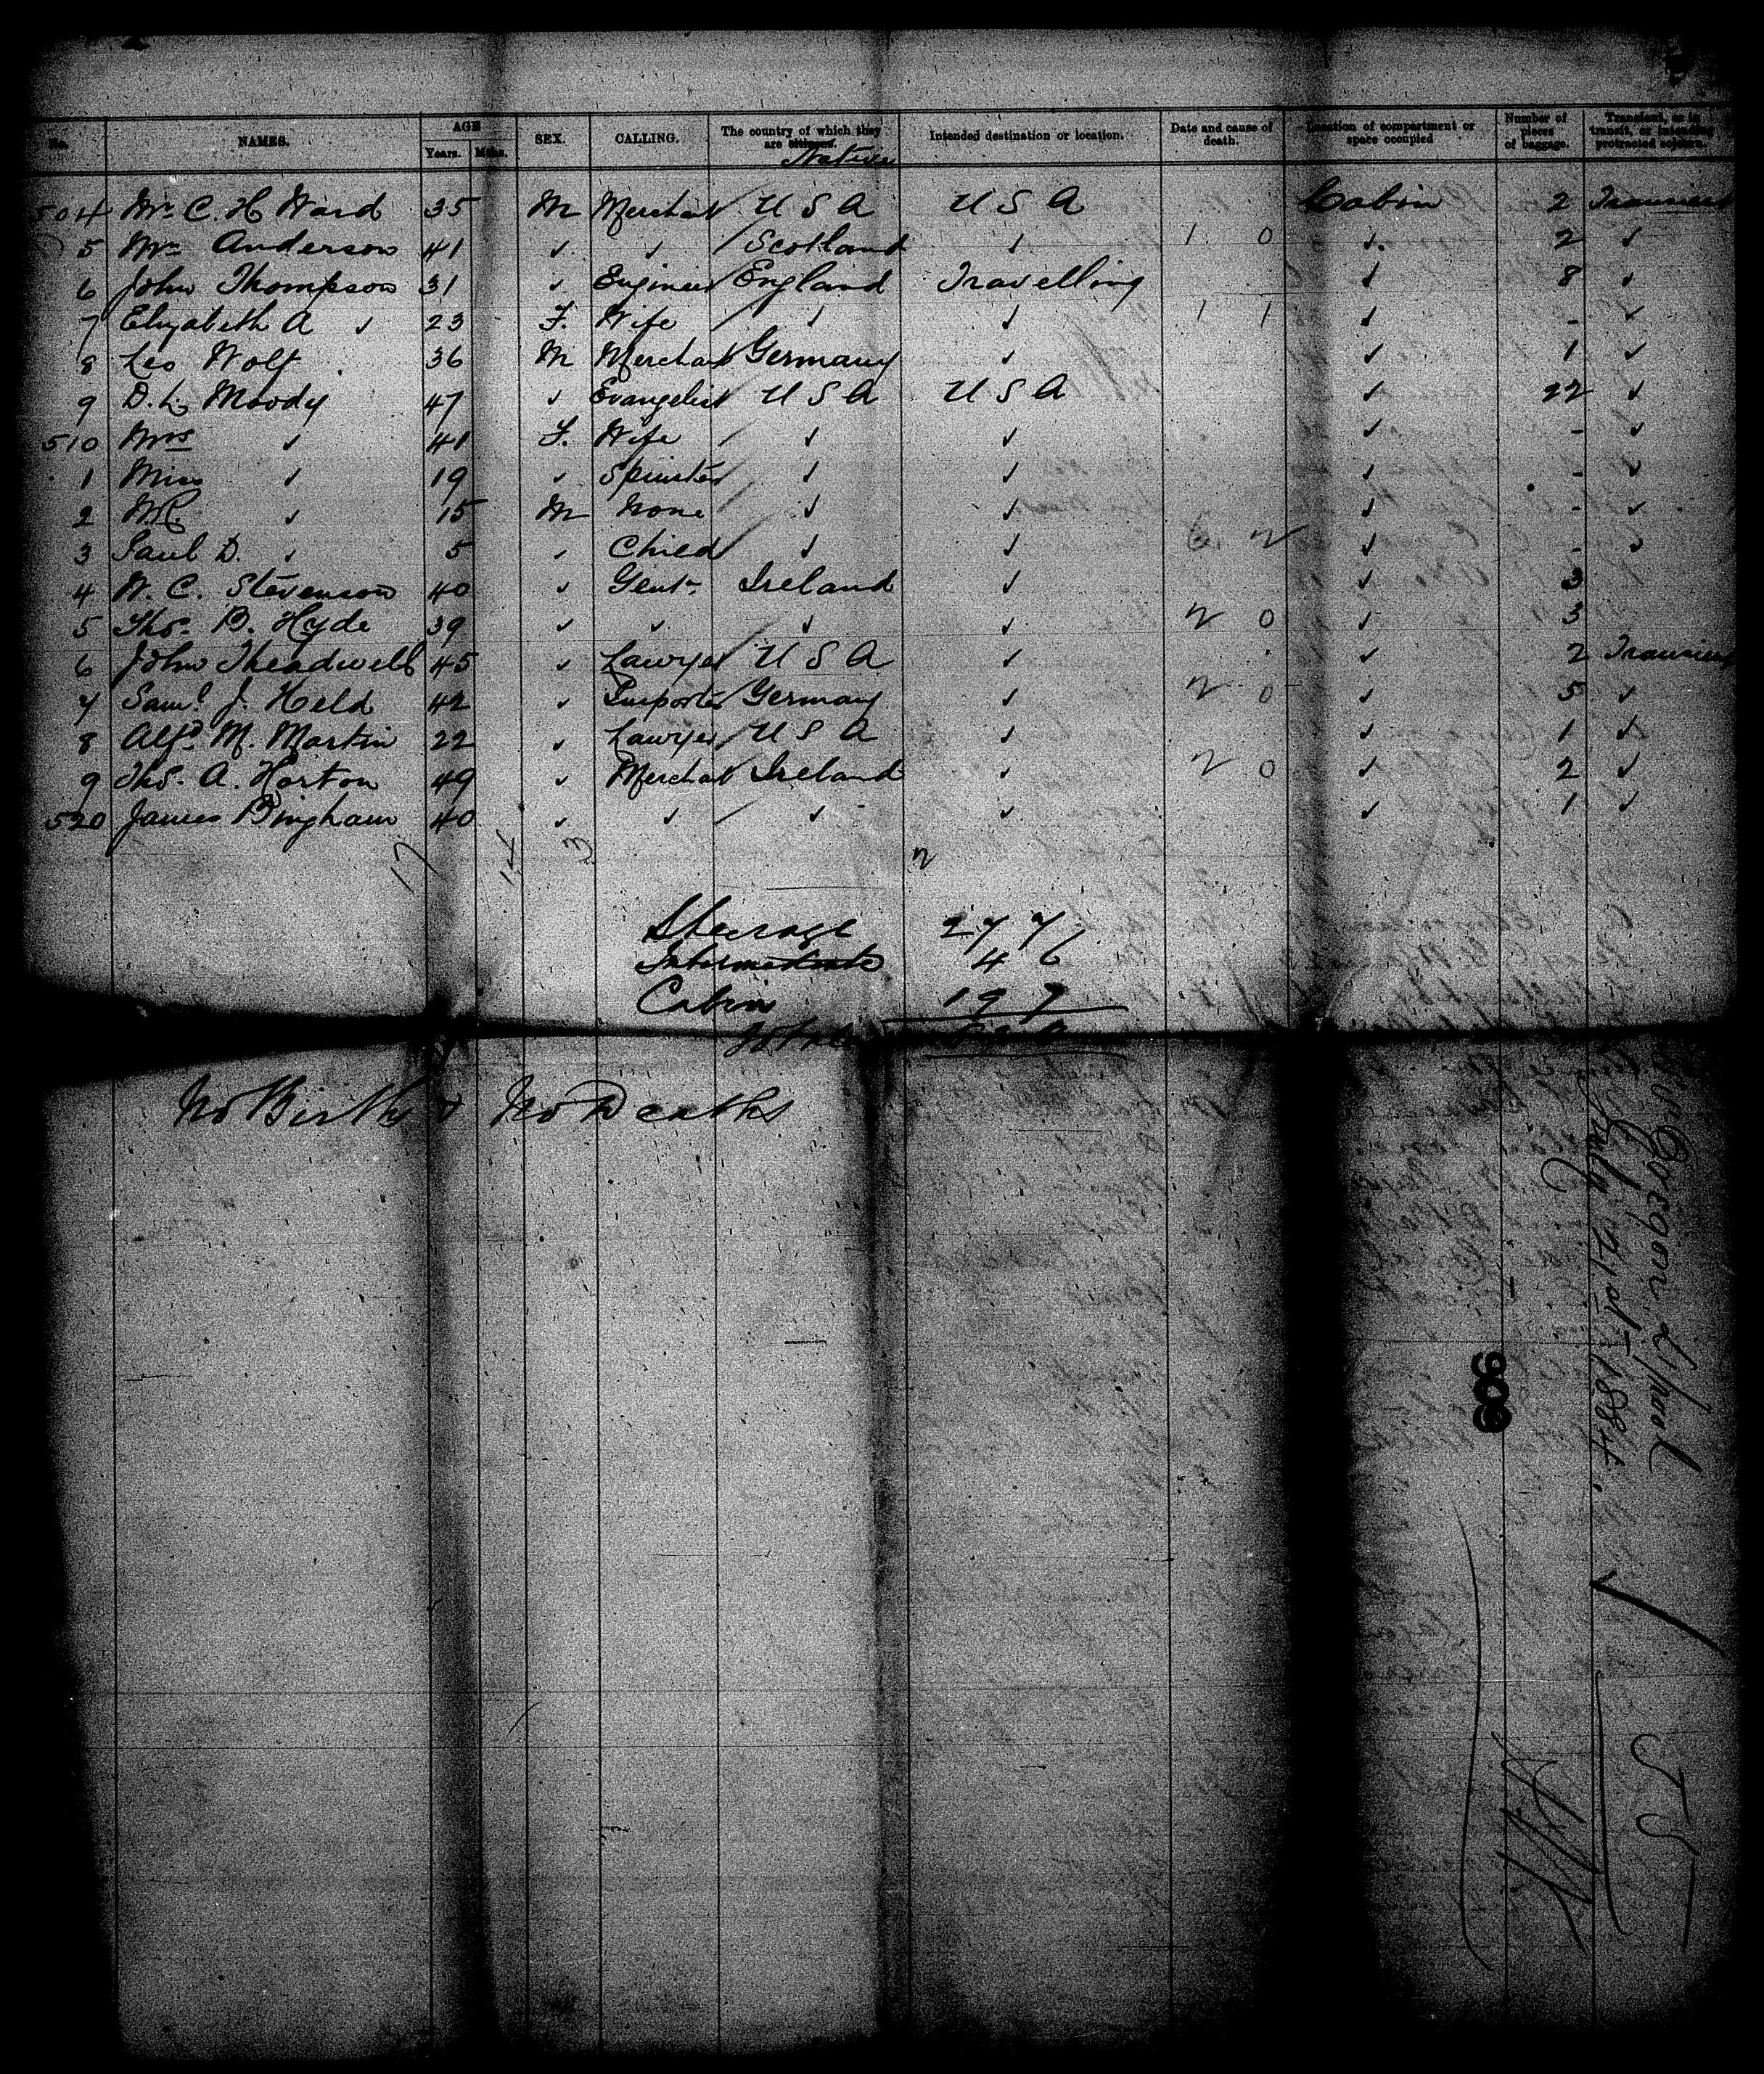 No. NAMES. AGE Years. Mths. SEX. CALLING. The country of which they are citizens. Native Intended destination or location. Date and cause of death. Location of compartment or space occupied Number of pieces of baggage. Transient, or in transit, or intending protracted sojourn.
504 Mr. C. H Ward 35 M Merchant U S A U S A Cabin 2 Transient
5 Mr. Anderson 41 ✓ ✓ Scotland ✓ 1 0 ✓ 2 ✓
6 John Thompson 31 ✓ Engineer England Travelling ✓ 8 ✓
7 Elizabeth A ✓ 23 F. Wife ✓ ✓ 1 1 ✓ - ✓
8 Leo Wolf 36 M Merchant Germany ✓ ✓ 1 ✓
9 D. L. Moody 47 ✓ Evangelist U S A U S A ✓ 22 ✓
510 Mrs ✓ 41 F. Wife ✓ ✓ ✓ - ✓
1 Miss ✓ 19 ✓ Spinster ✓ ✓ ✓ - ✓
2 W.R. ✓ 15 M None ✓ ✓ ✓ - ✓
3 Paul D. ✓ 5 ✓ Child ✓ ✓ 6 2 ✓ - ✓
4 W. C. Stevenson 40 ✓ Gent. Ireland ✓ ✓ 3
5 Thos. B. Hyde 39 ✓ ✓ ✓ ✓ 2 0 ✓ 3
6 John Theadwell 45 ✓ Lawyer U S A ✓ ✓ 2 Transient
7 Saml. J. Held 42 ✓ Importer Germany ✓ 2 0 ✓ 5 ✓
8 Alfd. M. Martin 22 ✓ Lawyer U S A ✓ ✓ 1 ✓
9 Thos. A. Horton 49 ✓ Merchant Ireland ✓ 2 0 ✓ 2 ✓
520 James Bingham 40 ✓ ✓ ✓ ✓ ✓ 1 ✓
17 14 3 2
Steerage 277
Intermediate 46
Cabin 197
Total
No Births & No Deaths
Oregon L'pool
July 21st 1884.
909